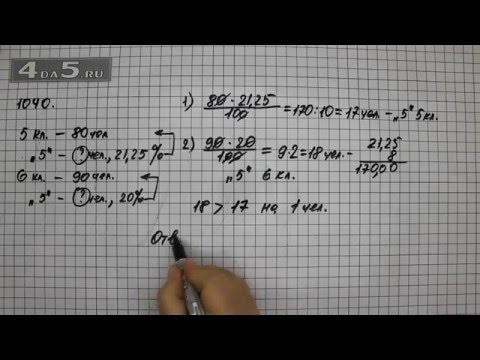 4DA5.RU
1040.
5 кл. – 80 чел
„5" – ? чел, 21,25 %
6 кл. – 90 чел.
„5" – ? чел., 20%
1) 80 · 21,25 / 100 = 170 : 10 = 17 чел – „5" 5 кл.
2) 90 · 20 / 100 = 9 · 2 = 18 чел –
„5" 6 кл.
21,25
8
170,00
18 > 17 на 1 чел.
Отв